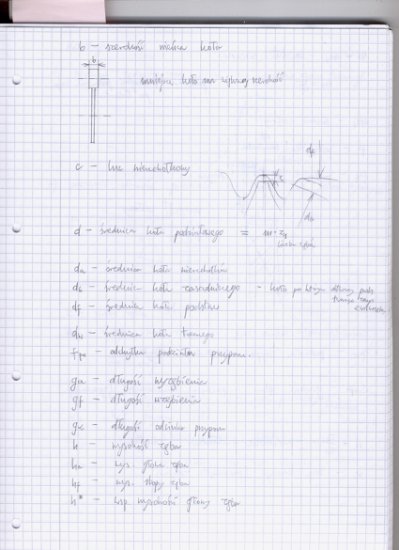 b - szerokość wieńca koła
b
mniejsze koło ma większą szerokość
c - luz wierzchołkowy
c
df
da
d - średnica koła podziałowego = m · z1
liczba zębów
da - średnica koła wierzchołków
db - średnica koła zasadniczego - koło po którym
ewolwenta
df - średnica koła podstaw
dw - średnica koła tocznego
fpx - odchyłka podziałki przypor.
ga - długość wyzębienia
gf - długość wzębienia
gα - długość odcinka przyporu
h - wysokość zęba
ha - wys. głowy zęba
hf - wys. stopy zęba
h* - wsp. wysokości głowy zęba